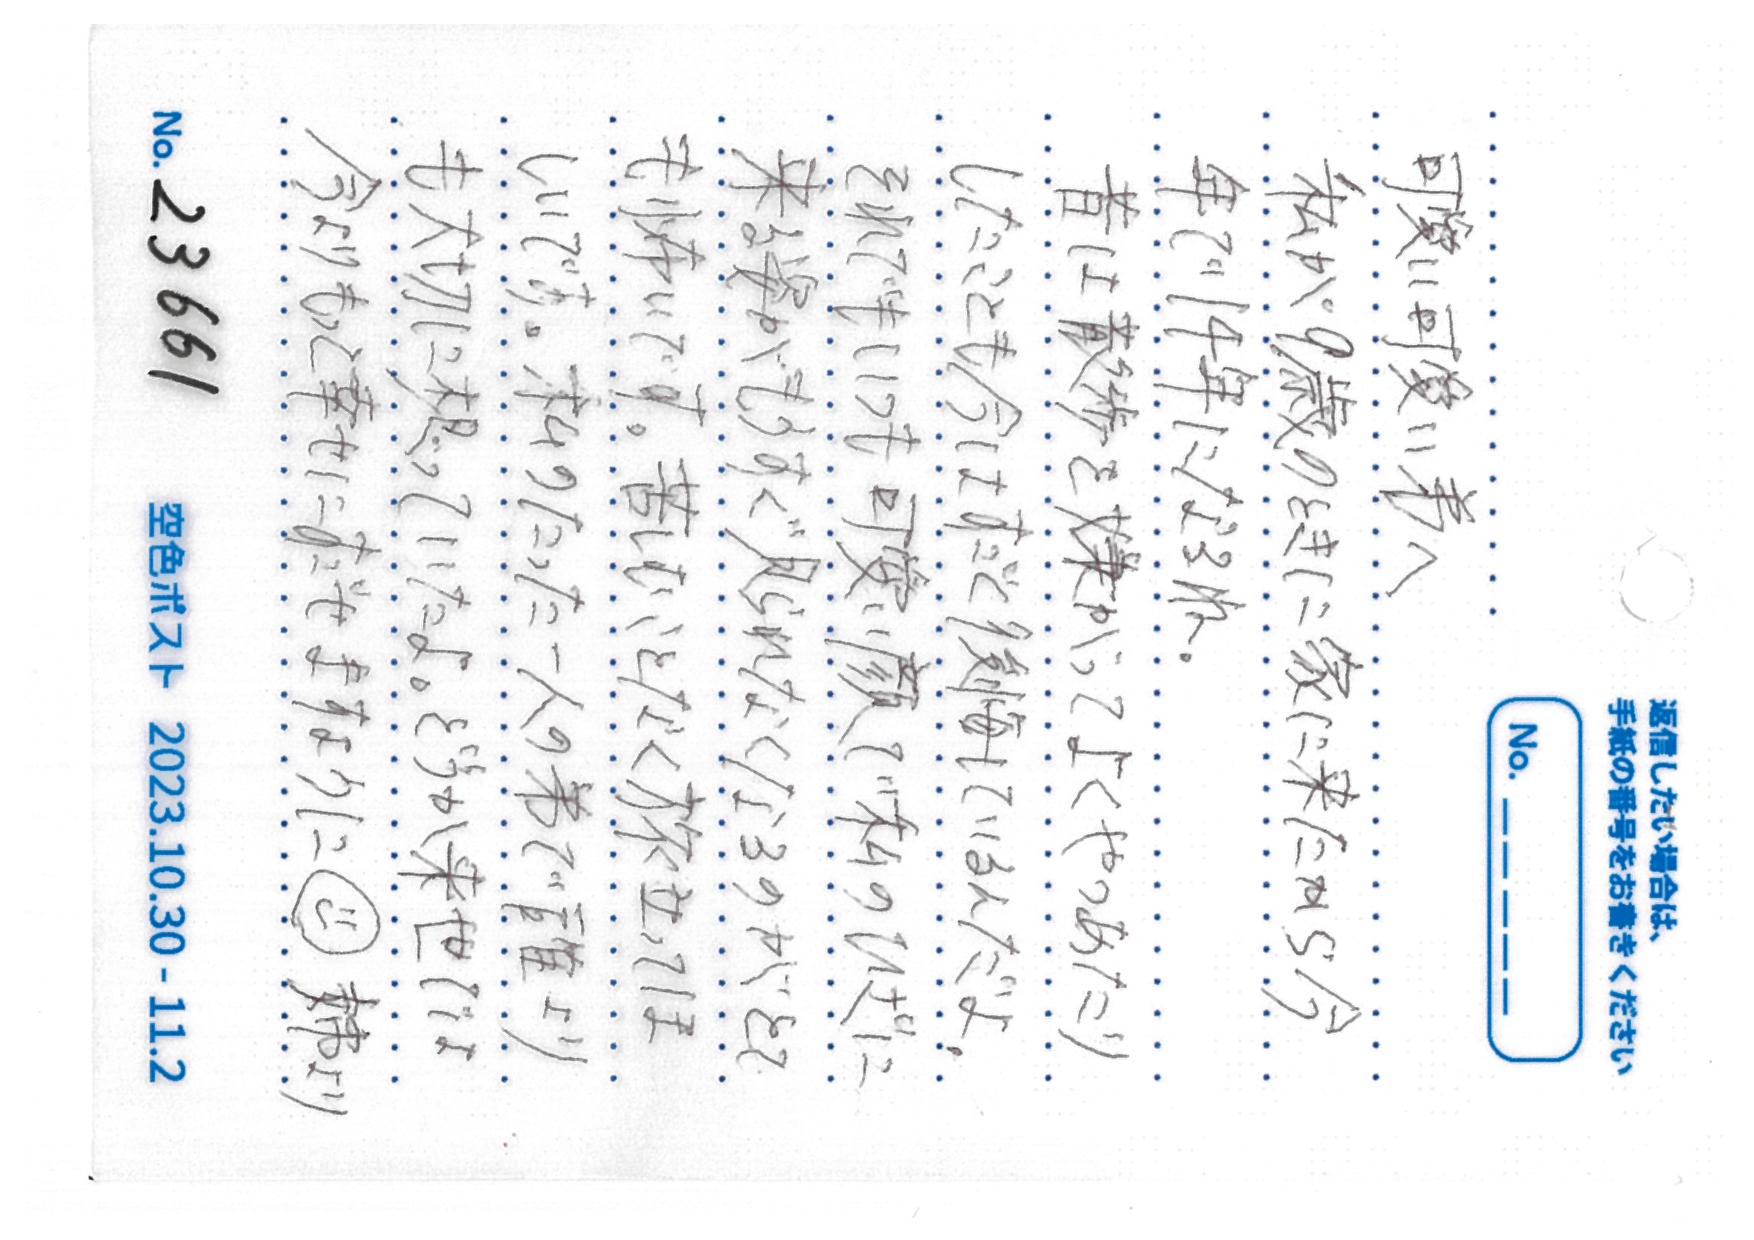 返信したい場合は、
手紙の番号をお書きください
No. _ _ _ _ _
可愛い可愛い弟へ
私が9歳のときに家に来たから今
年で14年になるね。
昔は散歩を嫌がってよくやつあたり
したことも今はすごく後悔しているんだよ。
それでもいつも可愛い顔で私のひざに
来る姿がもうすぐ見られなくなるのがとて
も怖いです。苦しむことなく旅立ってほ
しいです。私のたった一人の弟で誰より
も大切に想っていたよ。どうか来世では
今よりもっと幸せにすごせますように 姉より
No. 23661
空色ポスト 2023.10.30 - 11.2